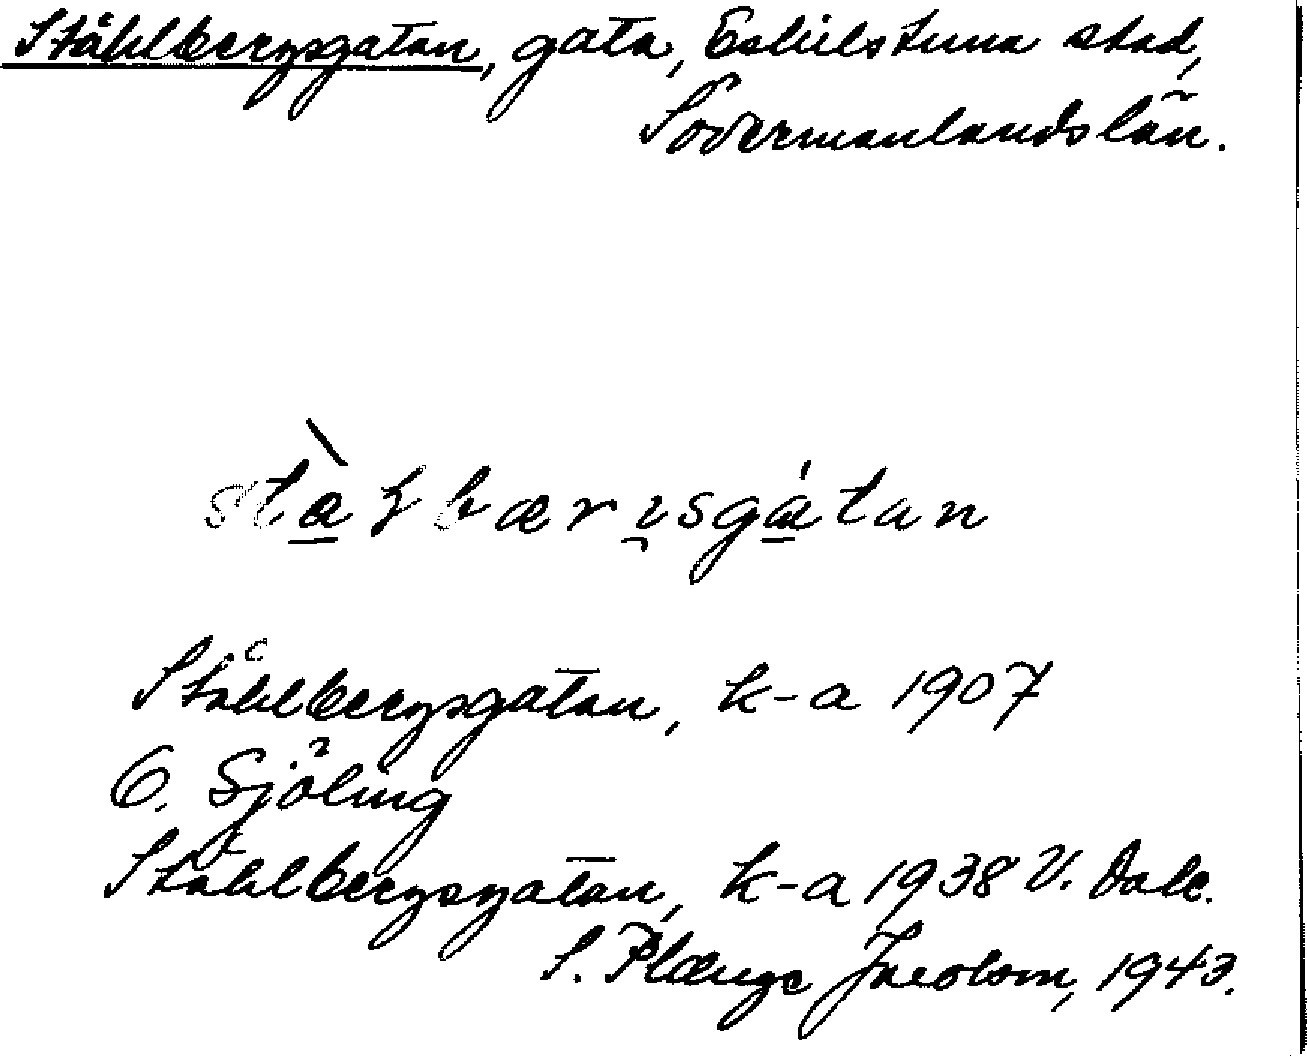 Ståhlbergsgatan, gata, Eskilstuna stad,
Södermanlands län.
Ståhlbergsgatan, k-a 1907
G. Sjöling
Ståhlbergsgatan, k-a 1938 V. Dale.
S. Plænge Jacobson, 1943.